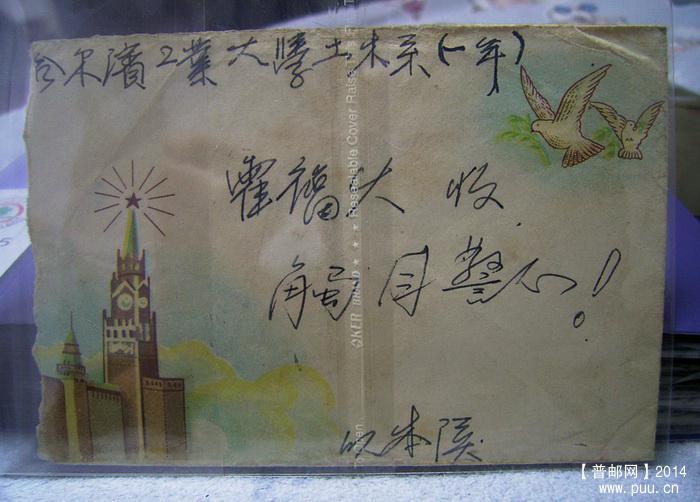 哈尔濱工業大學土木系(一年)
霍福大 收
觸目驚心!
本院
OKER BRAND ★ ★ ★ Resealable Cover Raise
【普邮网】2014
www.puu.cn